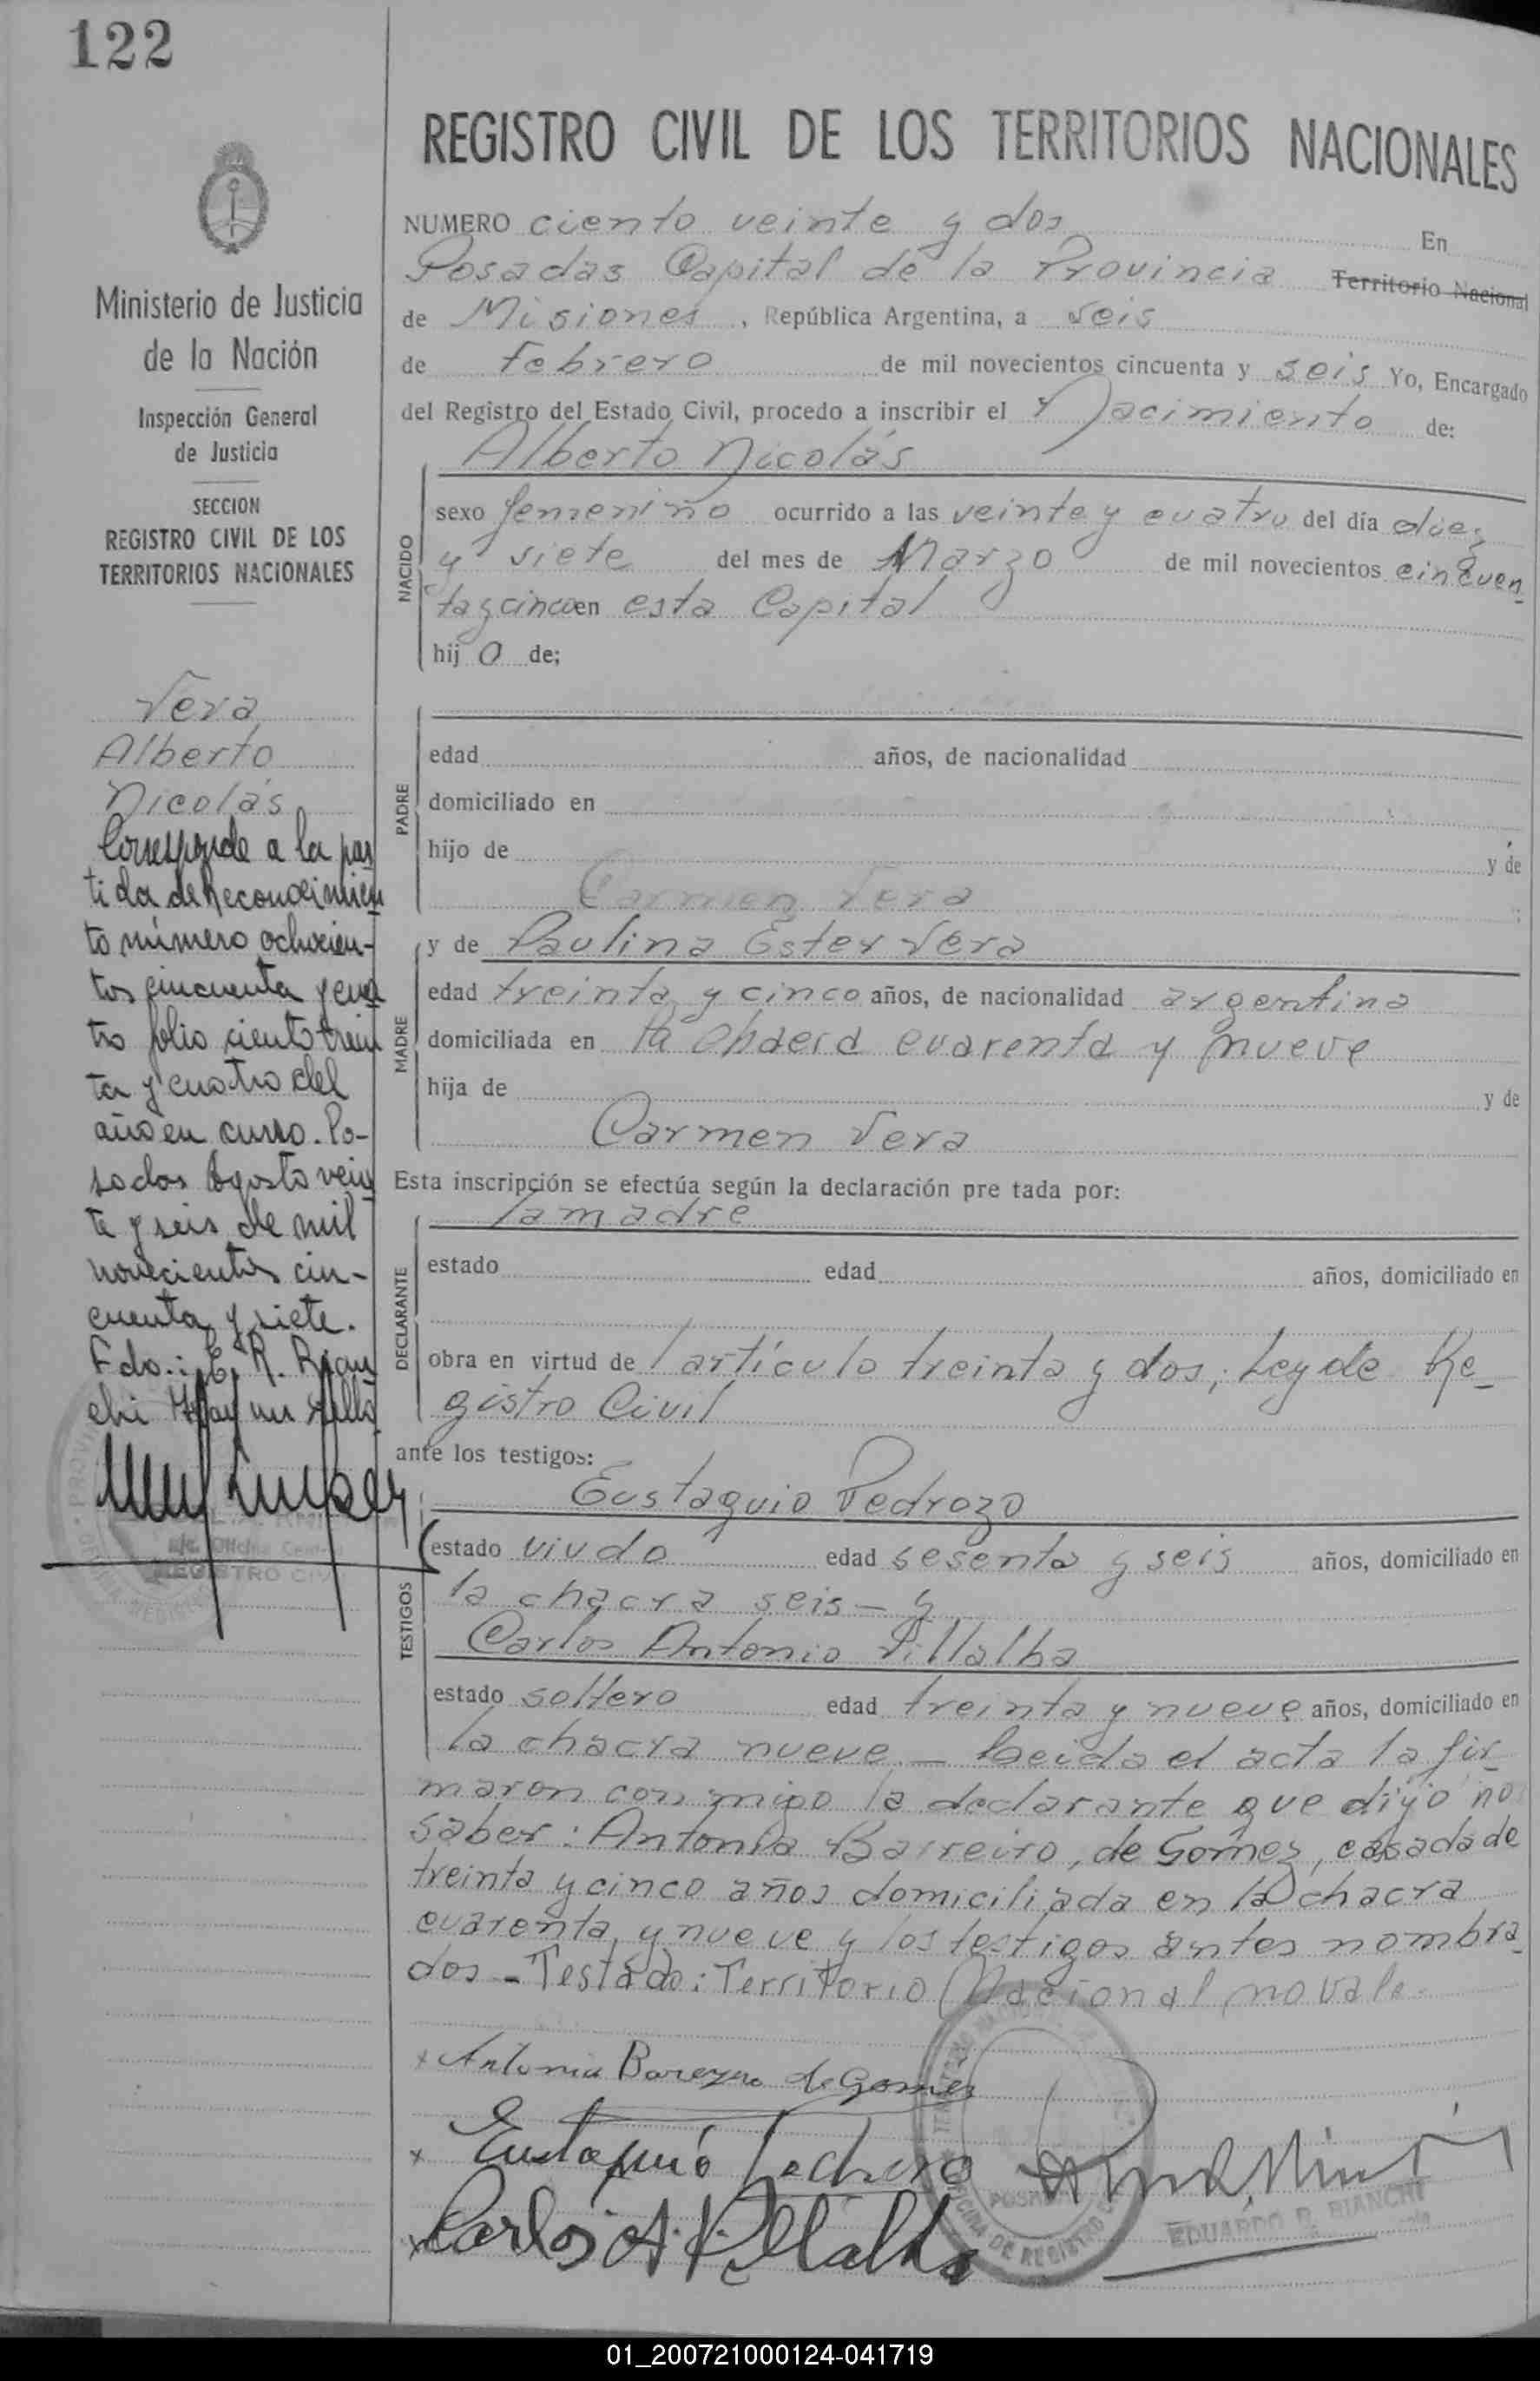 122
REGISTRO CIVIL DE LOS TERRITORIOS NACIONALES
Ministerio de Justicia
de la Nación
Inspección General
de Justicia
SECCION
REGISTRO CIVIL DE LOS
TERRITORIOS NACIONALES
Vera
Alberto
Nicolás
Corresponde a la par
tida de Reconocimien
to número ochocien-
tos cincuenta y cua
tro folio ciento trein
ta y cuatro del
año en curso. Po-
sadas Agosto vein
te y seis de mil
novecientos cin-
cuenta y siete.
Fdo.: E. R. Bian
chi Hay un sello
NUMERO ciento veinte y dos En
Posadas Capital de la Provincia Territorio Nacional
de Misiones, República Argentina, a seis
de Febrero de mil novecientos cincuenta y seis Yo, Encargado
del Registro del Estado Civil, procedo a inscribir el Nacimiento de:
Alberto Nicolás
NACIDO
sexo femenino ocurrido a las veinte y cuatro del día diez
y siete del mes de Marzo de mil novecientos cincuen
ta y cinco en esta Capital
hij o de;
PADRE
edad años, de nacionalidad
domiciliado en
hijo de y de
Carmen Vera
y de Paulina Ester Vera
MADRE
edad treinta y cinco años, de nacionalidad argentina
domiciliada en la chacra cuarenta y nueve
hija de y de
Carmen Vera
Esta inscripción se efectúa según la declaración pre tada por:
la madre
DECLARANTE
estado edad años, domiciliado en
obra en virtud de l artículo treinta y dos; Ley de Re_
gistro Civil
ante los testigos:
Eustaquio Pedrozo
TESTIGOS
estado viudo edad sesenta y seis años, domiciliado en
la chacra seis - y
Carlos Antonio Villalba
estado soltero edad treinta y nueve años, domiciliado en
la chacra nueve. - Leida el acta la fir_
maron con migo la declarante que dijo no
saber: Antonia Barreiro, de Gomez, casada de
treinta y cinco años domiciliada en la chacra
cuarenta y nueve y los testigos antes nombra_
dos - Testado: Territorio Nacional no vale.
x Antonia Bareyro de Gomez
x Eustaquio Pedrozo
x Carlos A. Villalba
POSADAS
OFICINA DE REGISTRO
EDUARDO R. BIANCHI
01_200721000124-041719